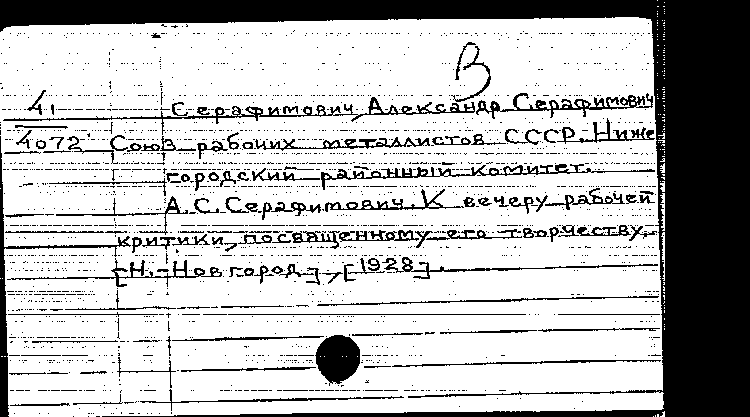 В
41 Серафимович, Александр Серафимович
4072 Союз рабочих металлистов СССР. Ниже
городский районный комитет.
А.С.Серафимович. К вечеру рабочей
критики, посвященному его творчеству.
[Н.-Новгород], [1928].